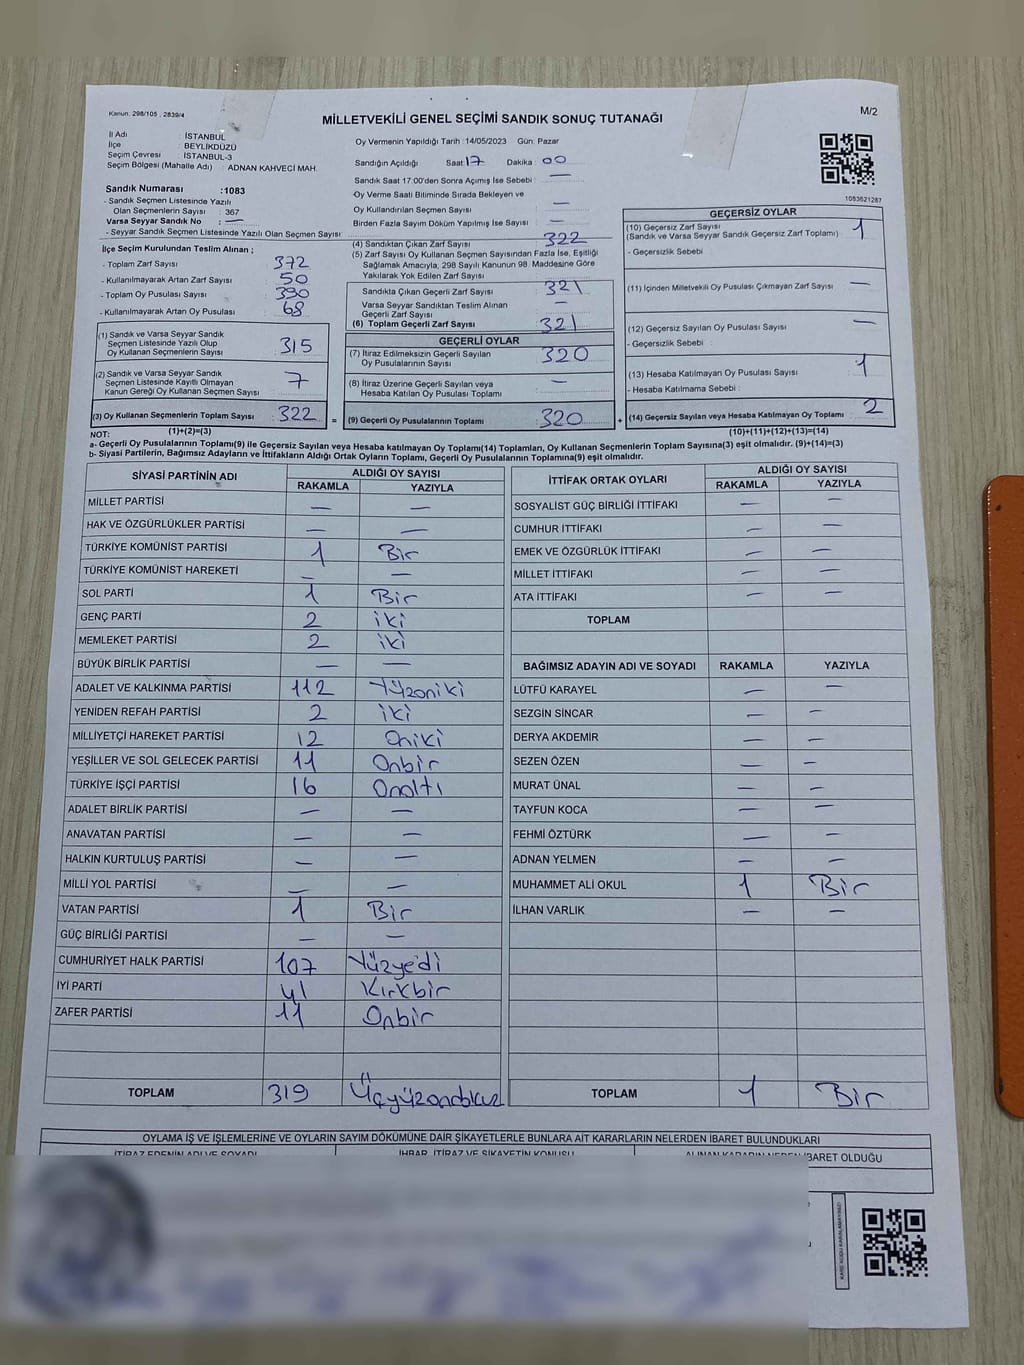 Kanun. 298/105 , 2839/4
M/2
MİLLETVEKİLİ GENEL SEÇİMİ SANDIK SONUÇ TUTANAĞI
İl Adı : İSTANBUL
İlçe : BEYLİKDÜZÜ
Seçim Çevresi : İSTANBUL-3
Seçim Bölgesi (Mahalle Adı) : ADNAN KAHVECİ MAH.
Oy Vermenin Yapıldığı Tarih :14/05/2023 Gün: Pazar
Sandığın Açıldığı Saat 17 Dakika : 00
Sandık Saat 17.00'den Sonra Açımış İse Sebebi : —
Oy Verme Saati Bitiminde Sırada Bekleyen ve
Oy Kullandırılan Seçmen Sayısı —
Birden Fazla Sayım Döküm Yapılmış İse Sayısı : —
1083621287
Sandık Numarası :1083
- Sandık Seçmen Listesinde Yazılı
Olan Seçmenlerin Sayısı : 367
Varsa Seyyar Sandık No : —
- Seyyar Sandık Seçmen Listesinde Yazılı Olan Seçmen Sayısı
İlçe Seçim Kurulundan Teslim Alınan ;
- Toplam Zarf Sayısı : 372
- Kullanılmayarak Artan Zarf Sayısı : 50
- Toplam Oy Pusulası Sayısı : 390
- Kullanılmayarak Artan Oy Pusulası : 68
(1) Sandık ve Varsa Seyyar Sandık
Seçmen Listesinde Yazılı Olup
Oy Kullanan Seçmenlerin Sayısı : 315
(2) Sandık ve Varsa Seyyar Sandık
Seçmen Listesinde Kayıtlı Olmayan
Kanun Gereği Oy Kullanan Seçmen Sayısı : 7
(3) Oy Kullanan Seçmenlerin Toplam Sayısı : 322
(1)+(2)=(3)
(4) Sandıktan Çıkan Zarf Sayısı : 322
(5) Zarf Sayısı Oy Kullanan Seçmen Sayısından Fazla İse, Eşitliği
Sağlamak Amacıyla, 298 Sayılı Kanunun 98. Maddesine Göre
Yakılarak Yok Edilen Zarf Sayısı :
Sandıkta Çıkan Geçerli Zarf Sayısı : 321
Varsa Seyyar Sandıktan Teslim Alınan
Geçerli Zarf Sayısı : —
(6) Toplam Geçerli Zarf Sayısı : 321
GEÇERLİ OYLAR
(7) İtiraz Edilmeksizin Geçerli Sayılan
Oy Pusulasının Sayısı : 320
(8) İtiraz Üzerine Geçerli Sayılan veya
Hesaba Katılan Oy Pusulası Toplamı : —
= (9) Geçerli Oy Pusulalarının Toplamı : 320
GEÇERSİZ OYLAR
(10) Geçersiz Zarf Sayısı : 1
(Sandık ve Varsa Seyyar Sandık Geçersiz Zarf Toplamı)
- Geçersizlik Sebebi :
(11) İçinden Milletvekili Oy Pusulası Çıkmayan Zarf Sayısı : —
(12) Geçersiz Sayılan Oy Pusulası Sayısı : —
- Geçersizlik Sebebi :
(13) Hesaba Katılmayan Oy Pusulası Sayısı : 1
- Hesaba Katılmama Sebebi :
+ (14) Geçersiz Sayılan veya Hesaba Katılmayan Oy Toplamı : 2
(10)+(11)+(12)+(13)=(14)
NOT:
a- Geçerli Oy Pusulalarının Toplamı(9) ile Geçersiz Sayılan veya Hesaba katılmayan Oy Toplamı(14) Toplamları, Oy Kullanan Seçmenlerin Toplam Sayısına(3) eşit olmalıdır. (9)+(14)=(3)
b- Siyasi Partilerin, Bağımsız Adayların ve İttifakların Aldığı Ortak Oyların Toplamı, Geçerli Oy Pusulalarının Toplamına(9) eşit olmalıdır.
SİYASİ PARTİNİN ADI ALDIĞI OY SAYISI
RAKAMLA YAZIYLA
MİLLET PARTİSİ — —
HAK VE ÖZGÜRLÜKLER PARTİSİ — —
TÜRKİYE KOMÜNİST PARTİSİ 1 Bir
TÜRKİYE KOMÜNİST HAREKETİ — —
SOL PARTİ 1 Bir
GENÇ PARTİ 2 iki
MEMLEKET PARTİSİ 2 iki
BÜYÜK BİRLİK PARTİSİ — —
ADALET VE KALKINMA PARTİSİ 112 Yüzoniki
YENİDEN REFAH PARTİSİ 2 iki
MİLLİYETÇİ HAREKET PARTİSİ 12 Oniki
YEŞİLLER VE SOL GELECEK PARTİSİ 11 Onbir
TÜRKİYE İŞÇİ PARTİSİ 16 Onaltı
ADALET BİRLİK PARTİSİ — —
ANAVATAN PARTİSİ — —
HALKIN KURTULUŞ PARTİSİ — —
MİLLİ YOL PARTİSİ — —
VATAN PARTİSİ 1 Bir
GÜÇ BİRLİĞİ PARTİSİ — —
CUMHURİYET HALK PARTİSİ 107 Yüzyedi
İYİ PARTİ 41 Kırkbir
ZAFER PARTİSİ 11 Onbir
TOPLAM 319 Üçyüzondokuz
İTTİFAK ORTAK OYLARI ALDIĞI OY SAYISI
RAKAMLA YAZIYLA
SOSYALİST GÜÇ BİRLİĞİ İTTİFAKI — —
CUMHUR İTTİFAKI — —
EMEK VE ÖZGÜRLÜK İTTİFAKI — —
MİLLET İTTİFAKI — —
ATA İTTİFAKI — —
TOPLAM
BAĞIMSIZ ADAYIN ADI VE SOYADI RAKAMLA YAZIYLA
LÜTFÜ KARAYEL — —
SEZGİN SİNCAR — —
DERYA AKDEMİR — —
SEZEN ÖZEN — —
MURAT ÜNAL — —
TAYFUN KOCA — —
FEHMİ ÖZTÜRK — —
ADNAN YELMEN — —
MUHAMMET ALİ OKUL 1 Bir
İLHAN VARLIK — —
TOPLAM 1 Bir
OYLAMA İŞ VE İŞLEMLERİNE VE OYLARIN SAYIM DÖKÜMÜNE DAİR ŞİKAYETLERLE BUNLARA AİT KARARLARIN NELERDEN İBARET BULUNDUKLARI
İTİRAZ EDENİN ADI VE SOYADI İHBAR, İTİRAZ VE ŞİKAYETİN KONUSU ALINAN KARARIN NEDEN İBARET OLDUĞU